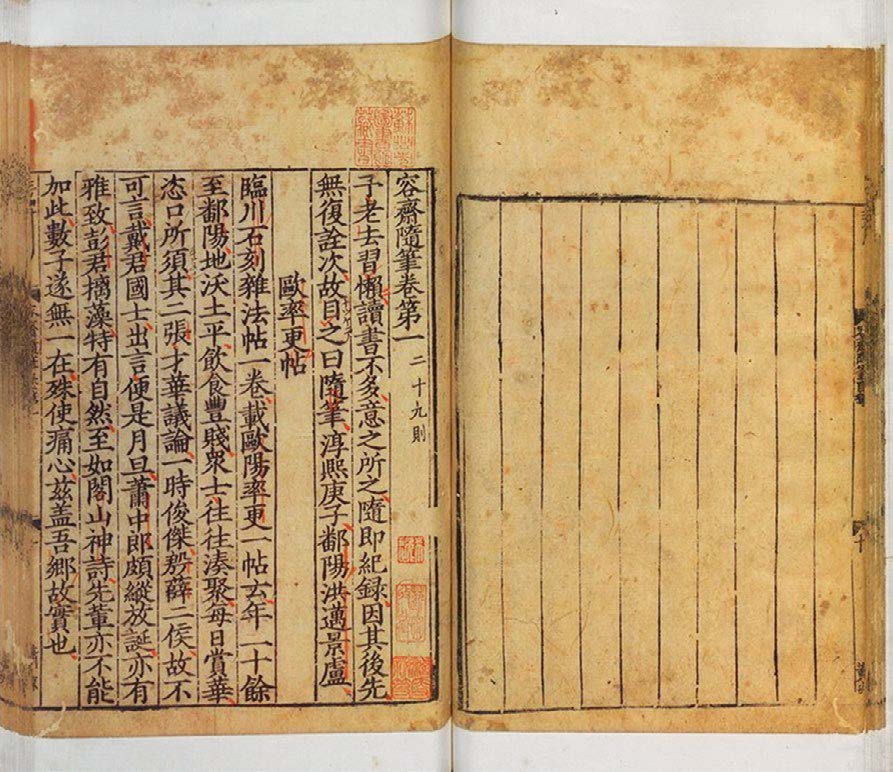 容齋隨筆卷第一 二十九則
予老去習懶讀書不多意之所之隨即紀録因其後先
無復詮次故目之曰隨筆淳熙庚子鄱陽洪邁景盧
歐率更帖
臨川石刻雜法帖一卷載歐陽率更一帖云年二十餘
至鄱陽地沃土平飲食豐賤衆士往往湊聚每日賞華
恣口所須其二張才華議論一時俊傑殷薛二侯故不
可言戴君國士出言便是月旦蕭中郎頗縱放誕亦有
雅致彭君摛藻特有自然至如閣山神詩先輩亦不能
加此數子遂無一在殊使痛心茲盖吾鄉故實也